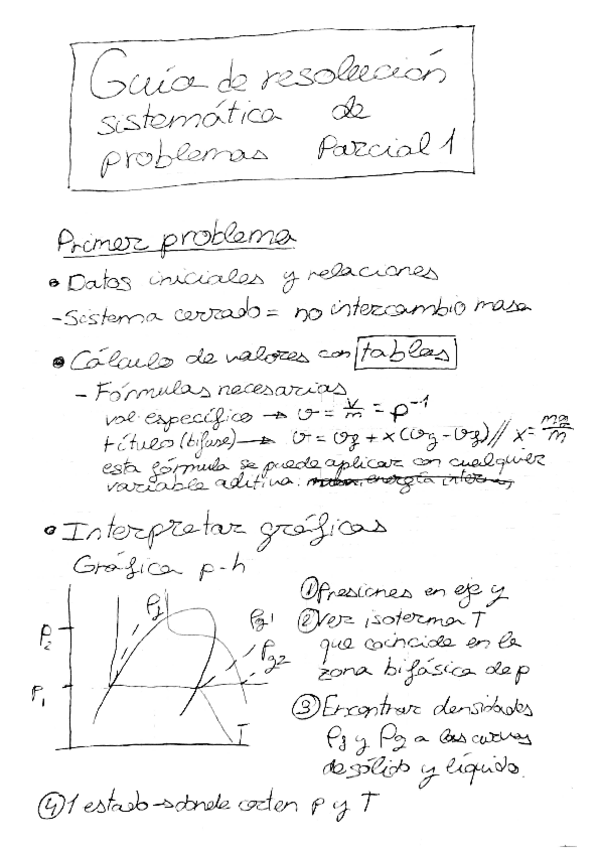 Guía de resolución
sistemática de
problemas Parcial 1
Primer problema
• Datos iniciales y relaciones
- Sistema cerrado = no intercambio masa
• Cálculo de valores con tablas
- Fórmulas necesarias
vol. específico → v = V/m = ρ⁻¹
título (bifase) → v = vf + x(vg - vf) // x = mg/m
esta fórmula se puede aplicar con cualquier
variable aditiva.
• Interpretar gráficas
Gráfica p-h
P₂
P₁
ρg1
ρg2
T
① Presiones en eje y
② Ver isoterma T
que coincide en la
zona bifásica de p
③ Encontrar densidades
ρf y ρg a las curvas
de sólido y líquido.
④ 1 estado → donde corten p y T